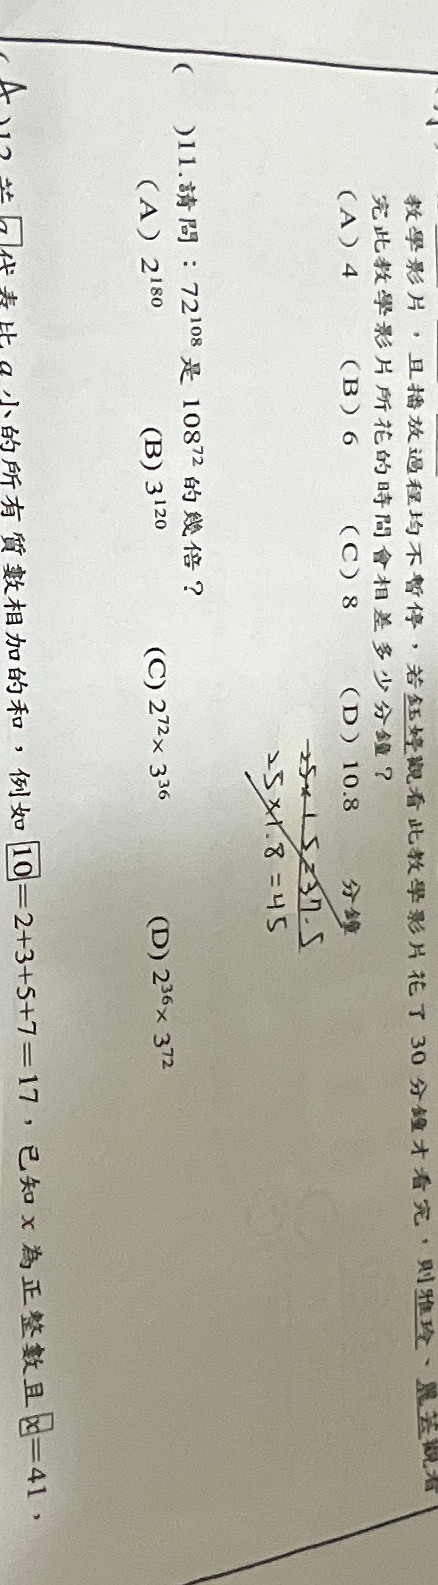 教學影片，且播放過程均不暫停，若鈺婷觀看此教學影片花了 30 分鐘才看完，則雅玲、麗芸觀看
完此教學影片所花的時間會相差多少分鐘？
(A) 4 (B) 6 (C) 8 (D) 10.8 分鐘
25×1.5=37.5
25×1.8=45
( )11.請問：72¹⁰⁸是 108⁷²的幾倍？
(A) 2¹⁸⁰ (B) 3¹²⁰ (C) 2⁷²×3³⁶ (D) 2³⁶×3⁷²
(A)12.若a代表比 a 小的所有質數相加的和，例如10=2+3+5+7=17，已知 x 為正整數且x=41，